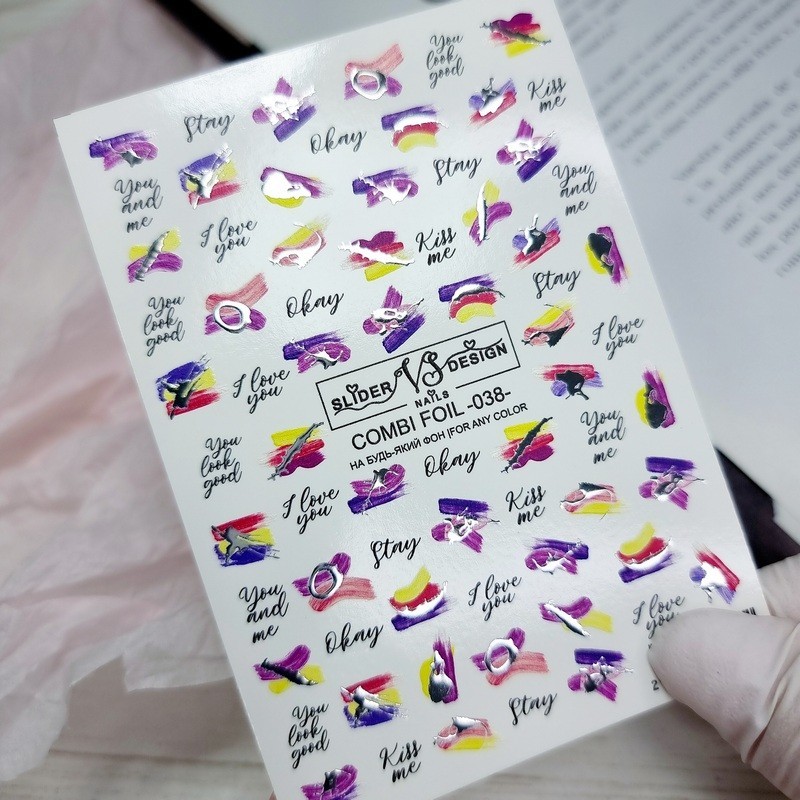 You
look
good
Stay
Okay
Kiss
me
You
and
me
Stay
You
and
me
I love
you
Kiss
me
You
look
good
Okay
Stay
I love
you
I love
you
SLIDER VS DESIGN
NAILS
COMBI FOIL -038-
НА БУДЬ-ЯКИЙ ФОН |FOR ANY COLOR
You
look
good
Okay
You
and
me
I love
you
Kiss
me
Stay
You
and
me
I love
you
I love
you
Okay
Stay
You
look
good
Kiss
me